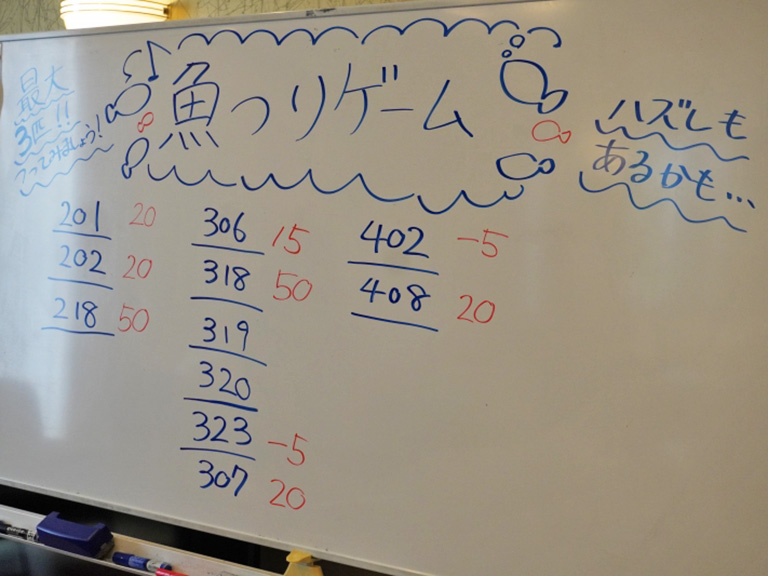 魚つりゲーム
最大
3匹!!
つってみましょう!
ハズレも
あるかも…
201 20
202 20
218 50
306 15
318 50
319
320
323 -5
307 20
402 -5
408 20